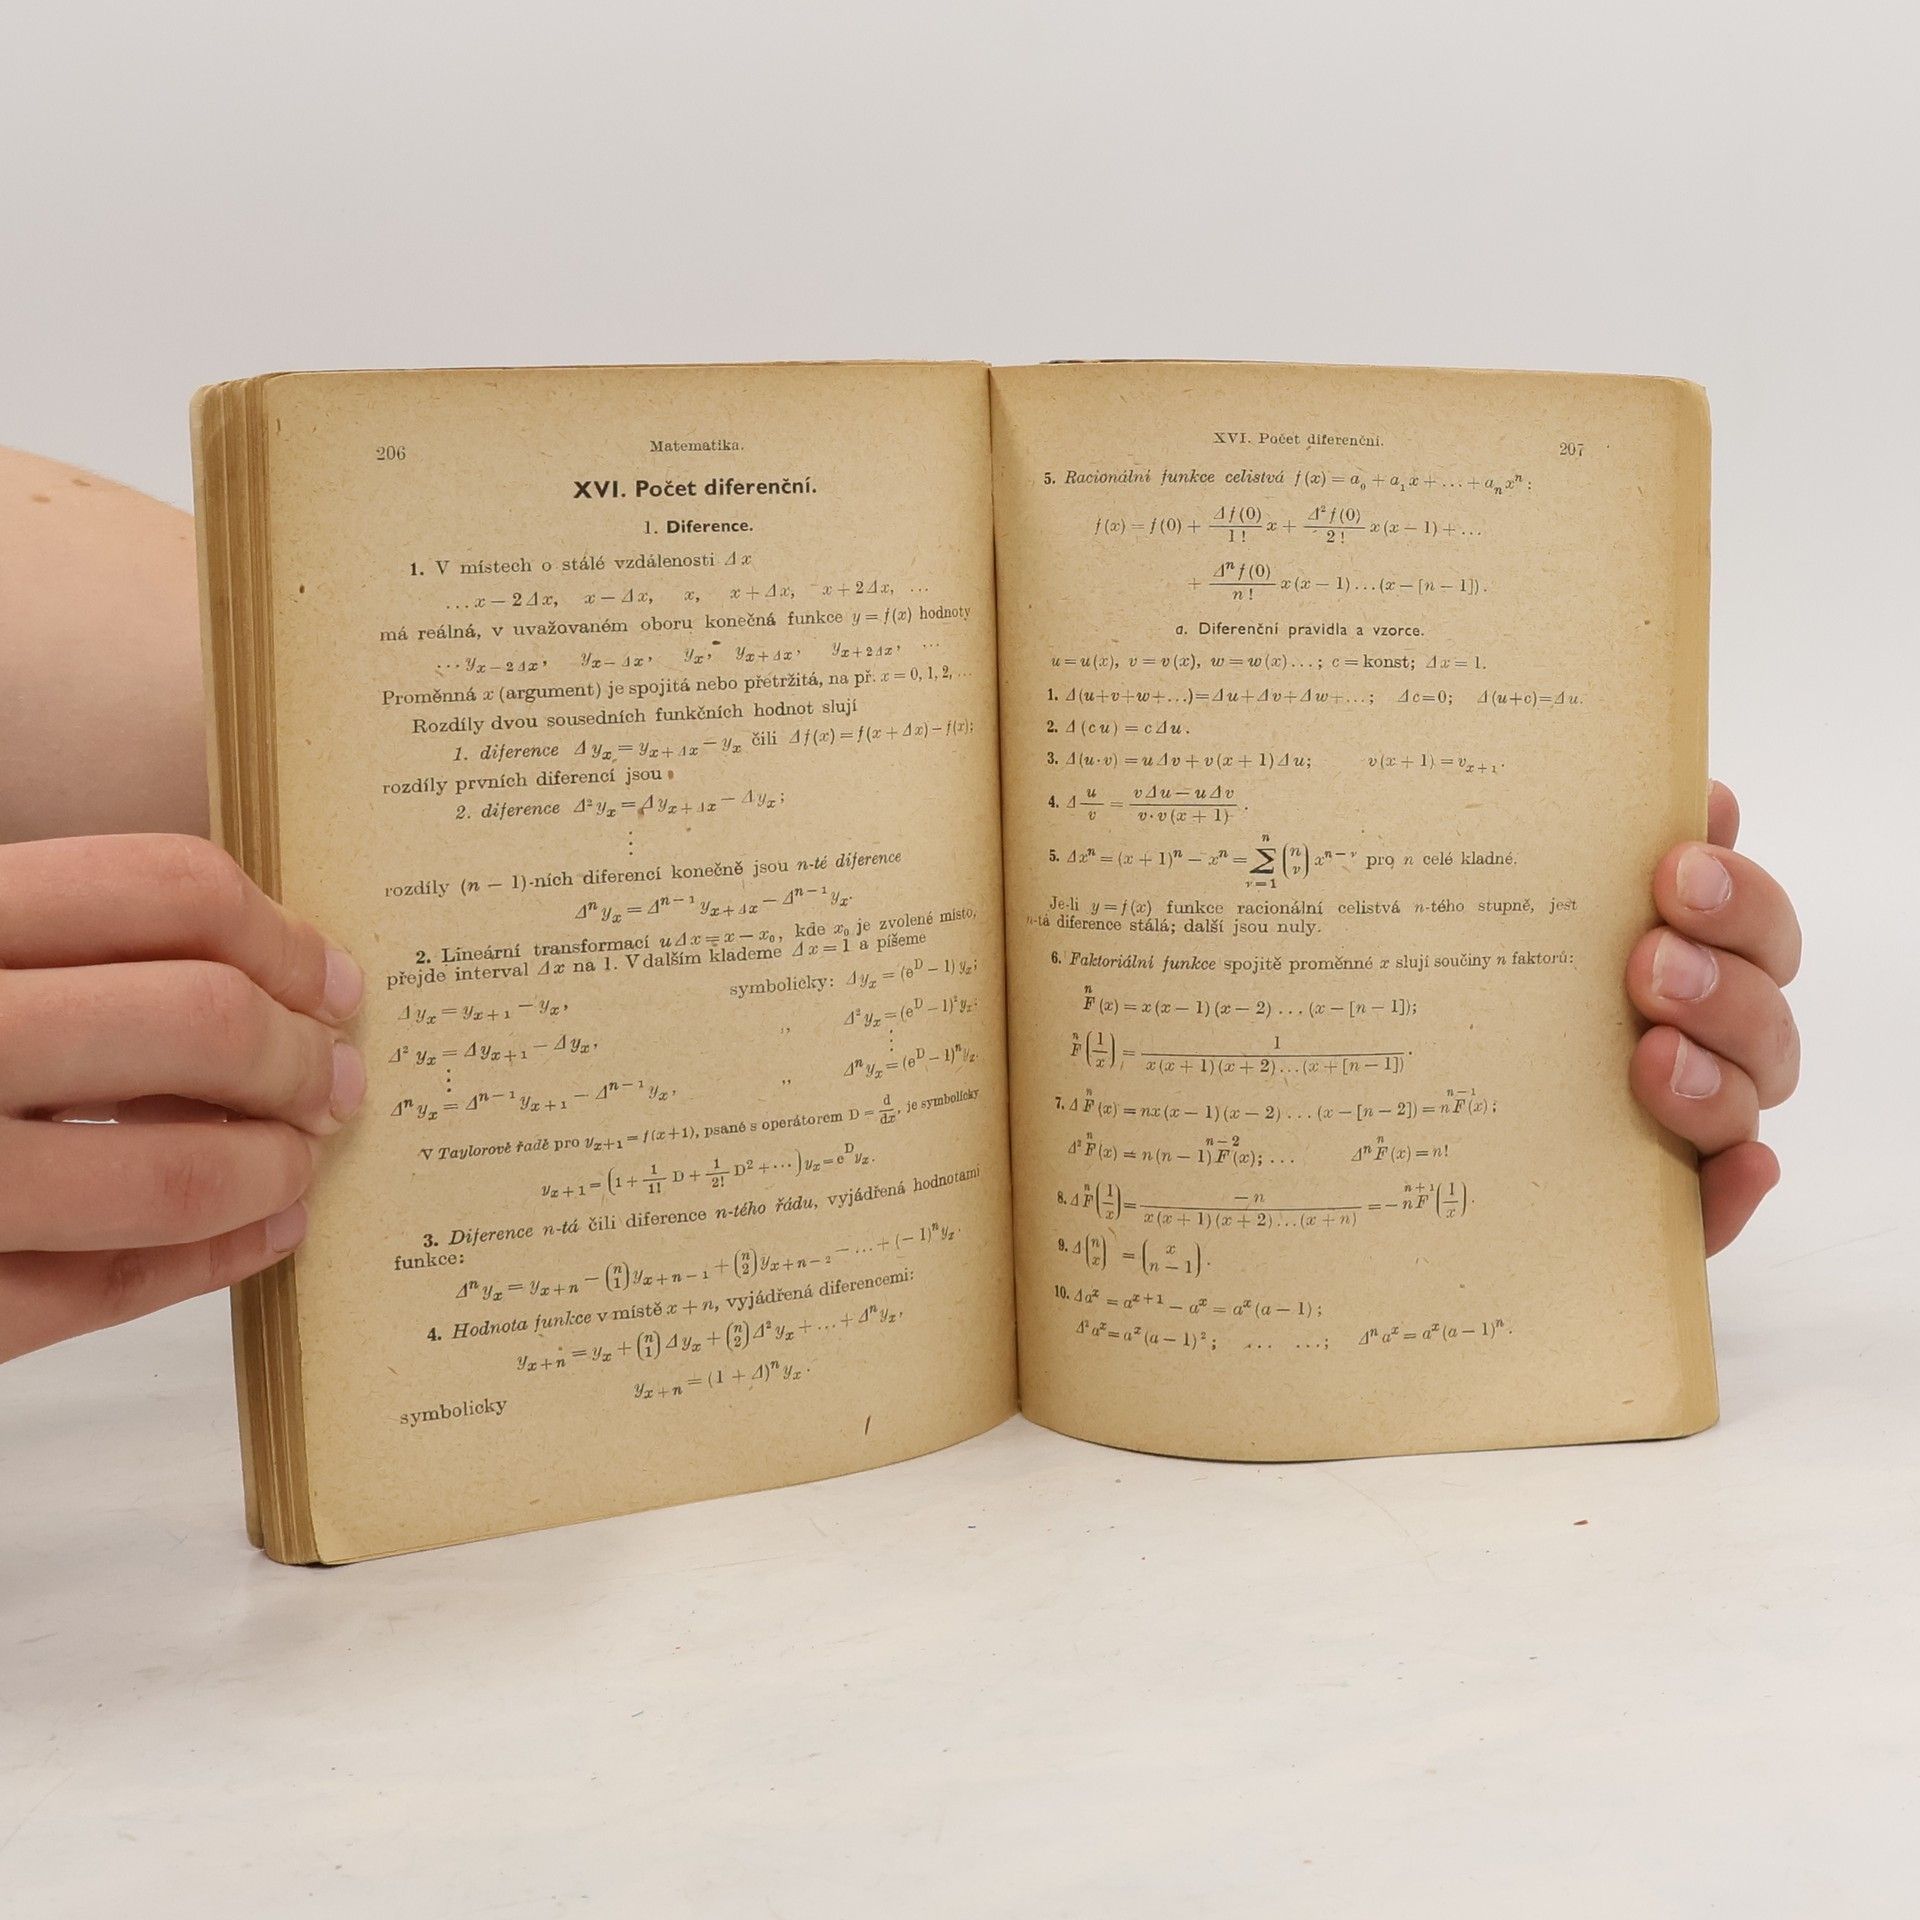 206 Matematika.
XVI. Počet diferenční.
1. Diference.
1. V místech o stálé vzdálenosti Δx
...x − 2Δx, x − Δx, x, x + Δx, x + 2Δx, ...
má reálná, v uvažovaném oboru konečná funkce y = f(x) hodnoty
... y_{x−2Δx}, y_{x−Δx}, y_x, y_{x+Δx}, y_{x+2Δx}, ...
Proměnná x (argument) je spojitá nebo přetržitá, na př. x = 0, 1, 2, ...
Rozdíly dvou sousedních funkčních hodnot slují
1. diference Δy_x = y_{x+Δx} − y_x čili Δf(x) = f(x + Δx) − f(x);
rozdíly prvních diferencí jsou
2. diference Δ²y_x = Δy_{x+Δx} − Δy_x;
⋮
rozdíly (n − 1)-ních diferencí konečně jsou n-té diference
Δ^n y_x = Δ^{n−1} y_{x+Δx} − Δ^{n−1} y_x.
2. Lineární transformací uΔx = x − x₀, kde x₀ je zvolené místo,
přejde interval Δx na 1. V dalším klademe Δx = 1 a píšeme
Δy_x = y_{x+1} − y_x, symbolicky: Δy_x = (e^D − 1) y_x;
Δ² y_x = Δy_{x+1} − Δy_x, ,, Δ²y_x = (e^D − 1)² y_x;
⋮ ⋮
Δ^n y_x = Δ^{n−1} y_{x+1} − Δ^{n−1} y_x, ,, Δ^n y_x = (e^D − 1)^n y_x.
V Taylorově řadě pro y_{x+1} = f(x+1), psané s operátorem D = d/dx, je symbolicky
y_{x+1} = (1 + 1/1! D + 1/2! D² + ···) y_x = e^D y_x.
3. Diference n-tá čili diference n-tého řádu, vyjádřená hodnotami
funkce:
Δ^n y_x = y_{x+n} − (n 1) y_{x+n−1} + (n 2) y_{x+n−2} − ... + (−1)^n y_x.
4. Hodnota funkce v místě x + n, vyjádřená diferencemi:
y_{x+n} = y_x + (n 1) Δy_x + (n 2) Δ² y_x + ... + Δ^n y_x,
symbolicky y_{x+n} = (1 + Δ)^n y_x.
XVI. Počet diferenční. 207
5. Racionální funkce celistvá f(x) = a₀ + a₁x + ... + a_n x^n:
f(x) = f(0) + Δf(0)/1! x + Δ²f(0)/2! x(x − 1) + ...
+ Δ^n f(0)/n! x(x − 1)...(x − [n − 1]).
a. Diferenční pravidla a vzorce.
u = u(x), v = v(x), w = w(x)...; c = konst; Δx = 1.
1. Δ(u+v+w+...) = Δu+Δv+Δw+...; Δc=0; Δ(u+c)=Δu.
2. Δ(cu) = cΔu.
3. Δ(u·v) = uΔv + v(x + 1)Δu; v(x + 1) = v_{x+1}.
4. Δ u/v = (vΔu − uΔv)/(v·v(x + 1)).
5. Δx^n = (x + 1)^n − x^n = ∑_{ν=1}^{n} (n ν) x^{n−ν} pro n celé kladné.
Je-li y = f(x) funkce racionální celistvá n-tého stupně, jest
n-tá diference stálá; další jsou nuly.
6. Faktoriální funkce spojitě proměnné x slují součiny n faktorů:
F^n(x) = x(x − 1)(x − 2)...(x − [n − 1]);
F^n(1/x) = 1/(x(x + 1)(x + 2)...(x + [n − 1])).
7. ΔF^n(x) = nx(x − 1)(x − 2)...(x − [n − 2]) = nF^{n−1}(x);
Δ²F^n(x) = n(n − 1)F^{n−2}(x); ... Δ^n F^n(x) = n!
8. ΔF^n(1/x) = −n/(x(x + 1)(x + 2)...(x + n)) = −nF^{n+1}(1/x).
9. Δ(n x) = (x n − 1).
10. Δa^x = a^{x+1} − a^x = a^x(a − 1);
Δ²a^x = a^x(a − 1)²; ... ...; Δ^n a^x = a^x(a − 1)^n.